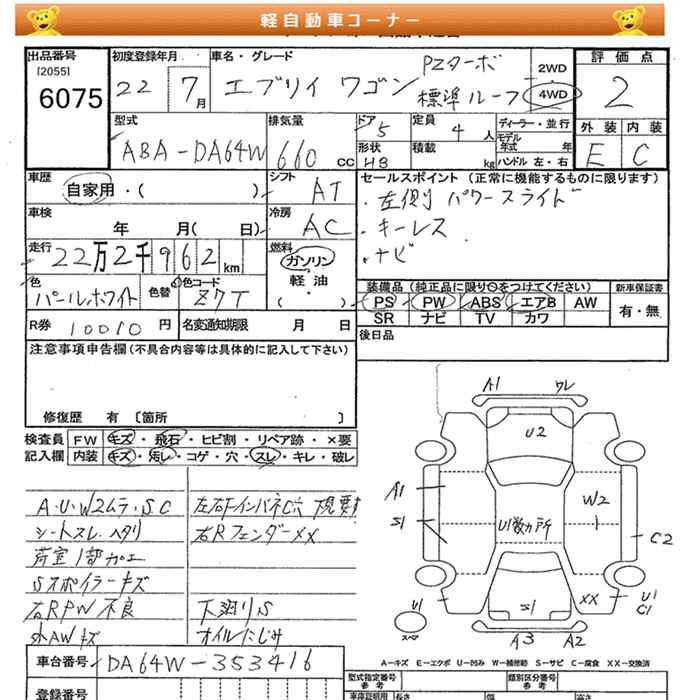 軽自動車コーナー
出品番号 初度登録年月 車名・グレード 評価点
[2055]
6075 22 7月 エブリイ ワゴン PZターボ 標準ルーフ 2WD 4WD 2
外装 内装
E C
型式 排気量 ドア 定員 ディーラー・並行
ABA-DA64W 660 cc 5 4人 モデル年式 年
形状 積載 ハンドル 左・右
HB kg
車歴 シフト セールスポイント (正常に機能するものに限ります)
自家用・( ) AT ・左側 パワースライド
車検 冷房 ・キーレス
年 月( 日) AC ・ナビ
走行 燃料
22万2千962km ガソリン・軽油・( )
色 色替 色コード 装備品 (純正品に限り○をつけてください) 新車保証書
パールホワイト Z7T PS PW ABS エアB AW 有・無
SR ナビ TV カワ
R券 10010円 名変通知期限 月 日 後日品
注意事項申告欄(不具合内容等は具体的に記入して下さい)
修復歴 有 〔箇所 〕
検査員 FW キズ・飛石・ヒビ割・リペア跡・×要
記入欄 内装 キズ・汚し・コゲ・穴・スレ・キレ・破レ
A・U・W2ムラ・SC
シートスレ、ヘタリ
荷室1部カエ
Sスポイラーキズ
右RPW不良
外AWキズ
左右ドインパネC穴
右RフェンダーXX
下廻りS
オイルにじみ
A1 ワレ
U2
A1
S1
U1数ヵ所
W2
C2
U1
S1
XX
U1
C1
スペア
A3 A2
A-キズ E-エクボ U-凹み W-補修跡 S-サビ C-腐食 XX-交換済
車台番号 DA64W-353416
登録番号
型式指定番号 類別区分番号
参考 参考
車庫証明用 長さ 幅 高さ